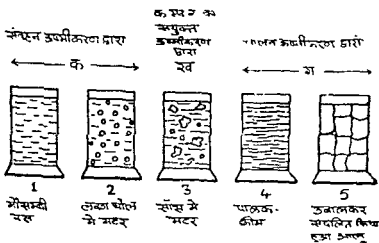 संवहन ऊष्मीकरण द्वारा
क
क तथा ग का
संयुक्त
ऊष्मीकरण
द्वारा
ख
चालन ऊष्मीकरण द्वारा
ग
1
मौसम्बी
रस
2
लवण घोल
मे मटर
3
सॉस मे
मटर
4
पालक-
क्रीम
5
उबालकर
संघनित किया
हुआ आलू